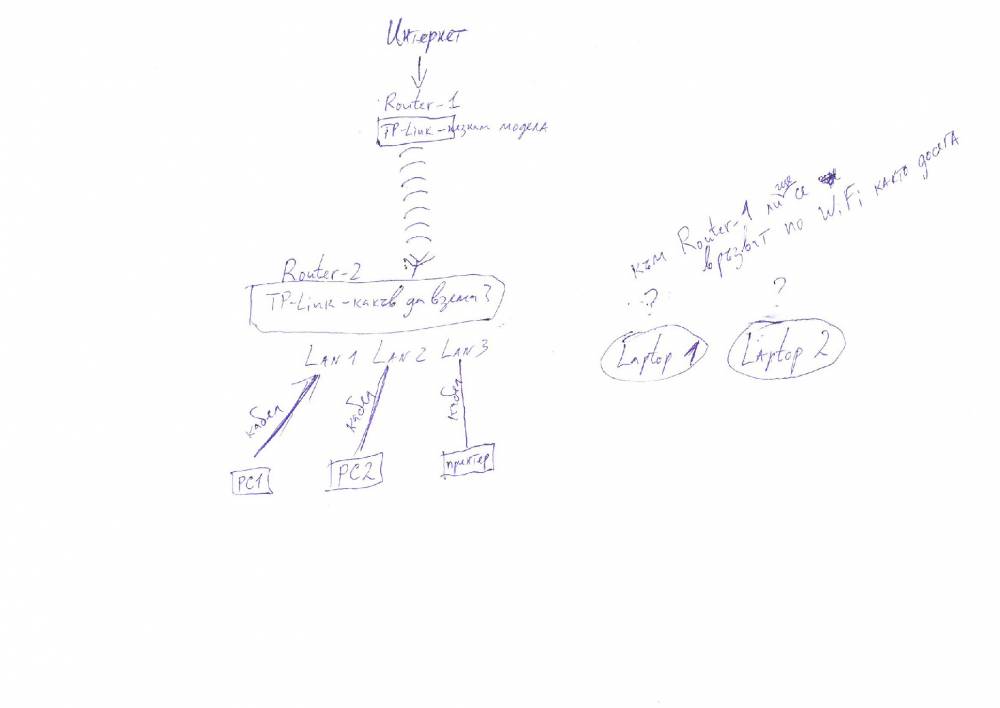 Интернет
Router-1
TP-Link - незнам модела
Router-2
TP-Link - какъв да взема?
LAN1 LAN2 LAN3
кабел
кабел
кабел
PC1
PC2
принтер
към Router-1 ли ще се
връзват по WiFi както досега
? ?
Laptop 1
LAptop 2